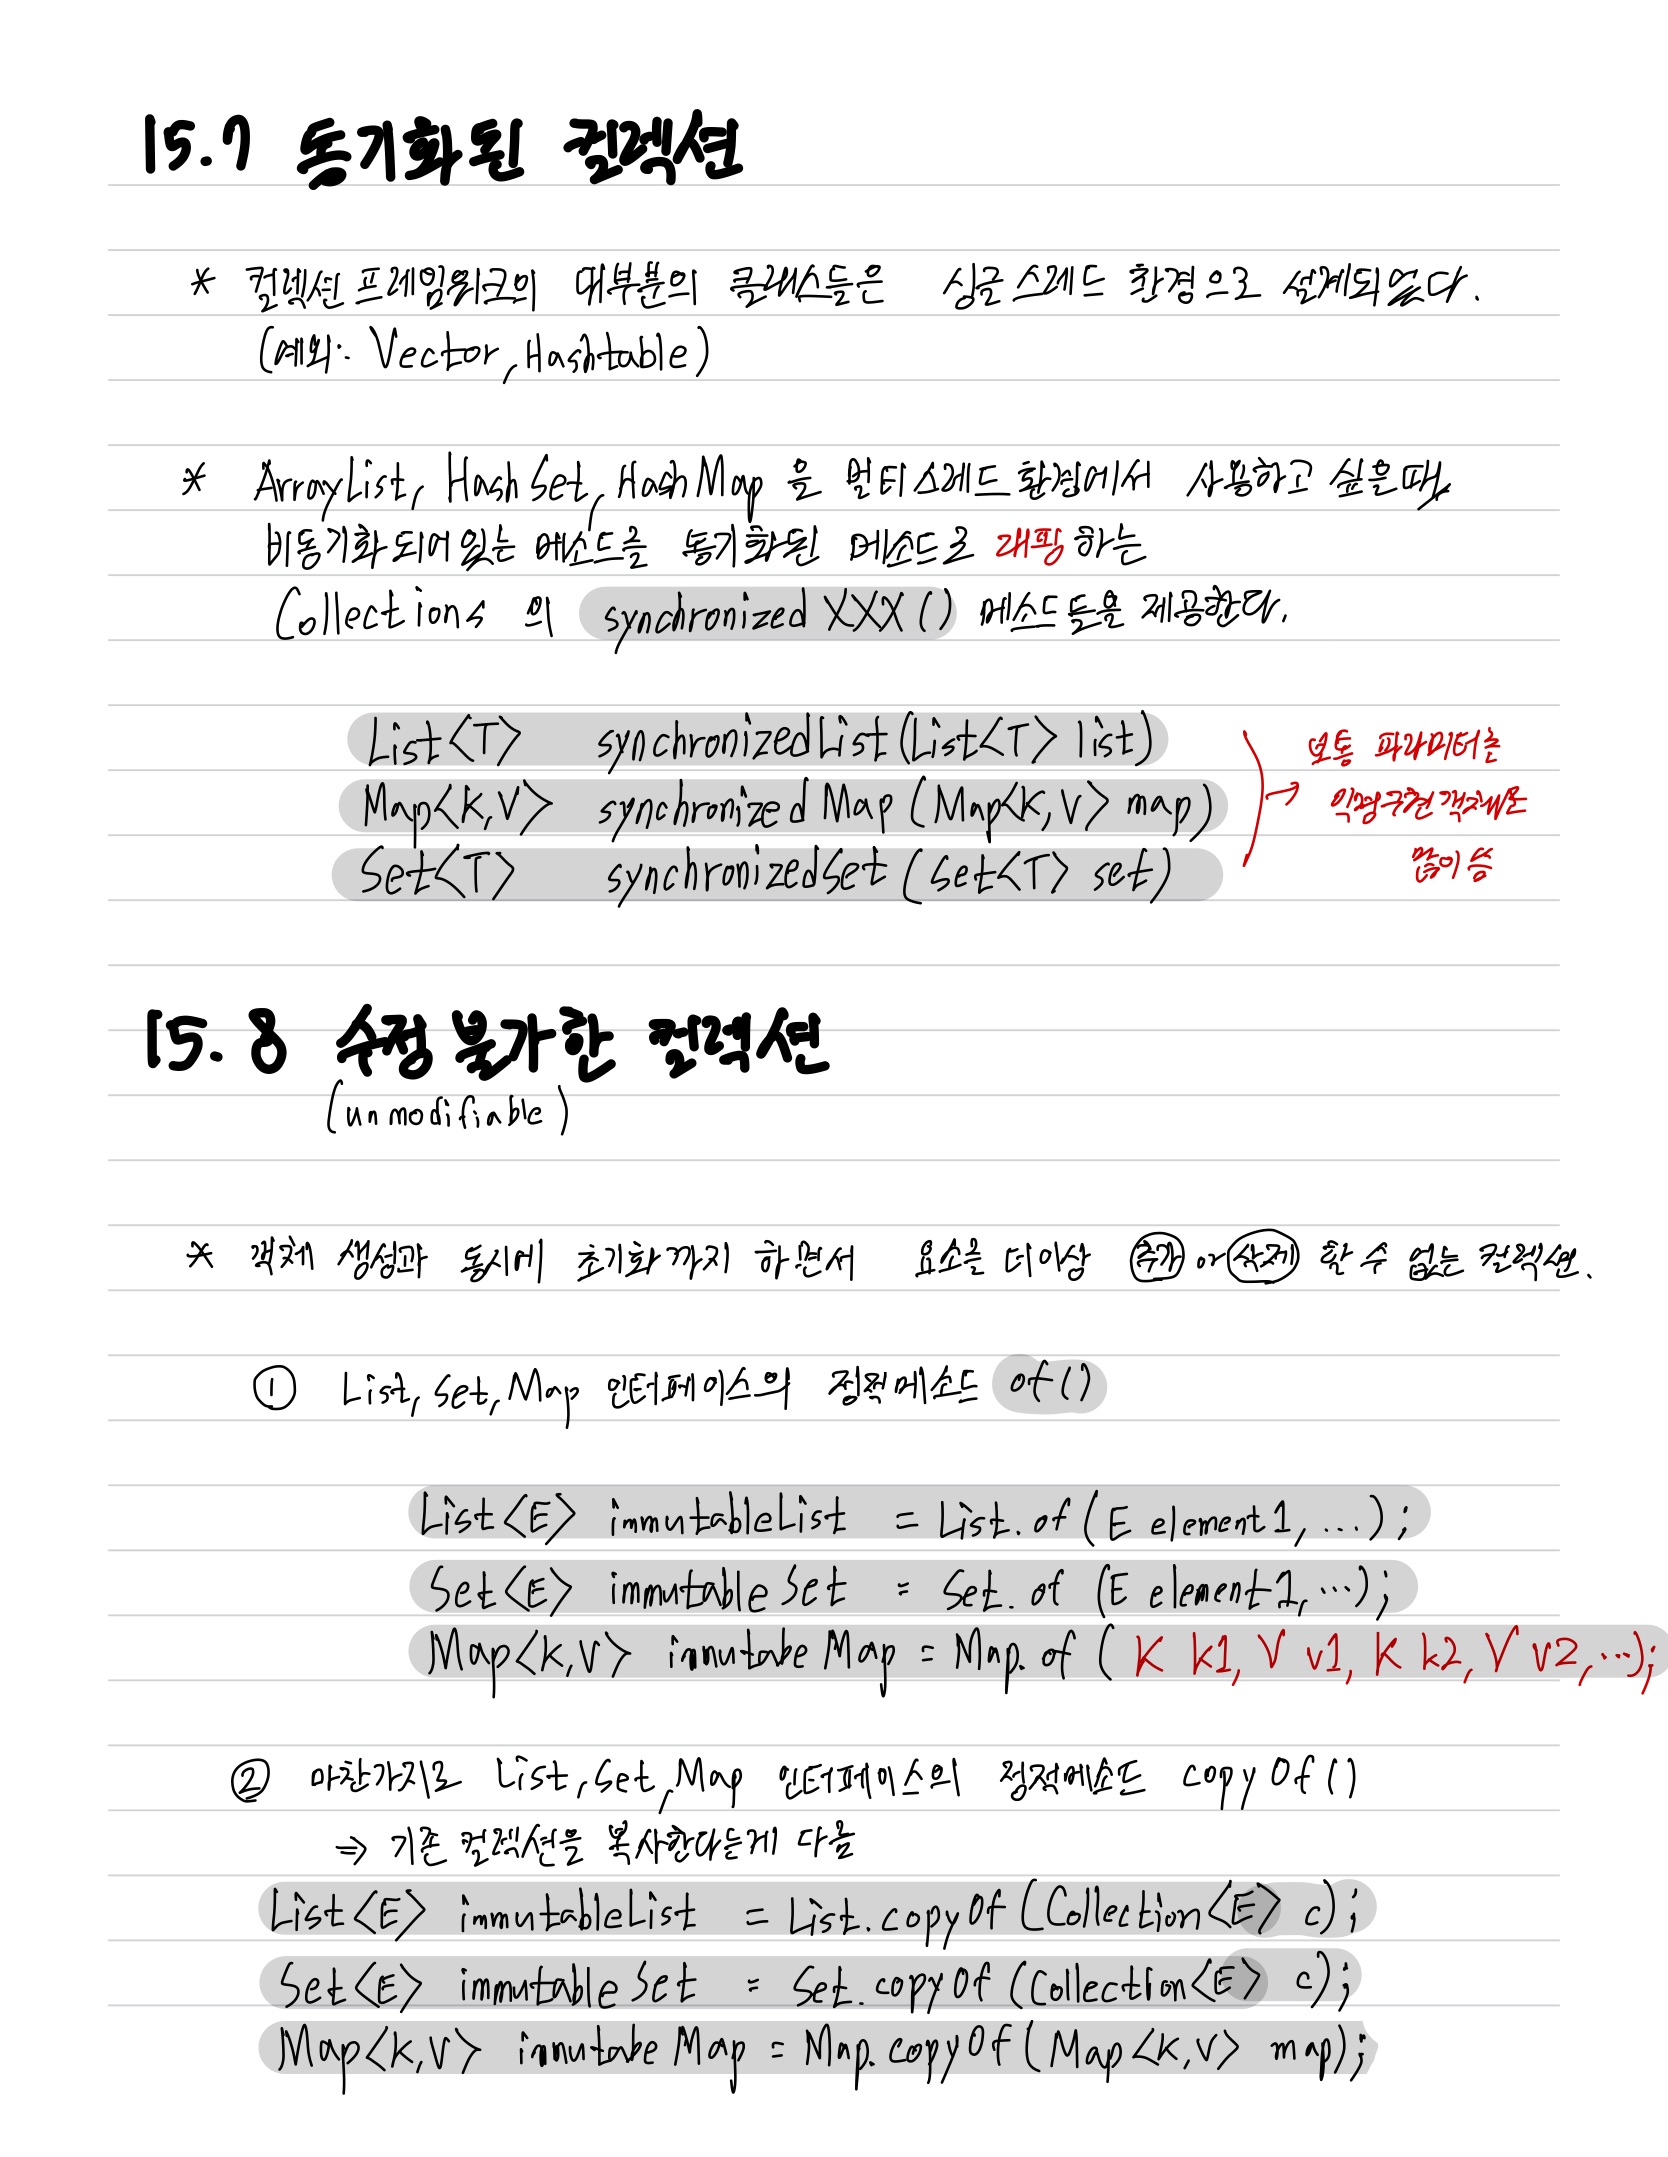 15.7 동기화된 컬렉션
* 컬렉션 프레임워크의 대부분의 클래스들은 싱글 스레드 환경으로 설계되었다.
(예외: Vector, Hashtable)
* ArrayList, HashSet, HashMap 을 멀티 스레드 환경에서 사용하고 싶을때,
비동기화 되어있는 메소드를 동기화된 메소드로 래핑 하는
Collections 의 synchronized XXX () 메소드들을 제공한다.
List<T> synchronizedList (List<T> list)
Map<K,V> synchronized Map (Map<K,V> map)
Set<T> synchronizedSet (Set<T> set)
보통 파라미터는
익명구현 객체로
많이 씀
15.8 수정 불가한 컬렉션
(unmodifiable)
* 객체 생성과 동시에 초기화까지 하면서 요소를 더이상 추가 or 삭제 할 수 없는 컬렉션.
① List, Set, Map 인터페이스의 정적메소드 of()
List<E> immutableList = List.of (E element1, ...);
Set<E> immutable Set = Set.of (E element1, ...);
Map<K,V> immutabe Map = Map.of ( K k1, V v1, K k2, V v2, ...);
② 마찬가지로 List, Set, Map 인터페이스의 정적메소드 copyOf()
⇒ 기존 컬렉션을 복사한다는게 다름
List<E> immutableList = List.copyOf (Collection<E> c);
Set<E> immutable Set = Set.copyOf (Collection<E> c);
Map<K,V> immutabe Map = Map.copyOf (Map<K,V> map);